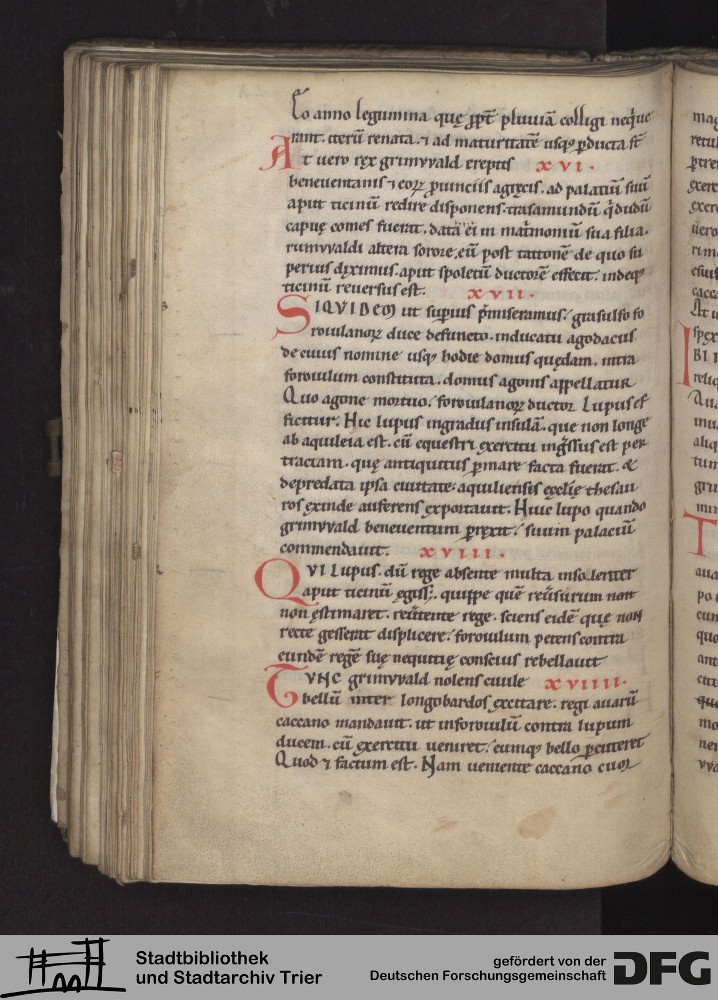 Eo anno legumina quę ꝓpt̄ pluuiā colligi neq̇ue
rant. iterū renata. ⁊ ad maturitatē usq; ꝑducta st̄
At uero rex grimvvald ereptis xvi.
beneuentanis ⁊ eoꝝ ꝓuinciis agręcis. ad palatiū suū
aput ticinū redire disponens. trasamundū q̇dudū
capuę comes fuerat. data ei in mat̓moniū sua filia.
rumvvaldi altera sorore, eū post tattonē de quo su
perius diximus. aput spoletū ductorē effecit. indeq;
ticinū reuersus est. xvii.
SIQVIDEM ut suꝑius p̄miseramus. grasulfo fo
roiulanoꝝ duce defuncto. inducatu agodacus
de cuius nomine usq; hodie domus quędam. intra
foroiulum constituta. domus agonis appellatur
Quo agone mortuo. foroiulanoꝝ ductor Lupus ef
ficitur. Hic lupus ingradus insulā. que non longe
ab aquileia est. cū equestri exercitu ing̓ssus est per
tractam. quę antiquitus ꝑ mare facta fuerat. &
depredata ipsa ciuitate. aquiliensis eęlię thesau
ros exinde auferens exportauit. Huic lupo quando
grimvvald beneuentum ꝑrexit. suum palaciū
commendauit. xviii.
QVI Lupus. dū rege absente multa insolenter
aput ticinū egiss;. quippe quē reūsurum non
non ęstimaret. reūtente rege. sciens eidē que non
recte gesserat displicere. foroiulum petens contra
eundē regē suę nequitię conscius rebellauit
TVNC grimvvald nolens ciuile xviiii.
bellū inter longobardos excitare. regi auarū
caccano mandauit. ut inforoiulū contra lupum
ducem. cū exercitu ueniret. eumq; bello ꝑcuteret
Quod ⁊ factum est. Nam ueniente caccano cuꝫ
Stadtbibliothek
und Stadtarchiv Trier
gefördert von der
Deutschen Forschungsgemeinschaft
DFG